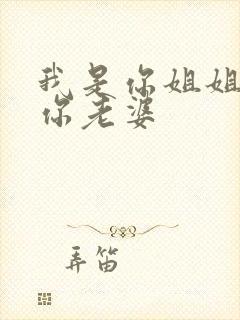 我是你姐姐
你老婆
弄笛